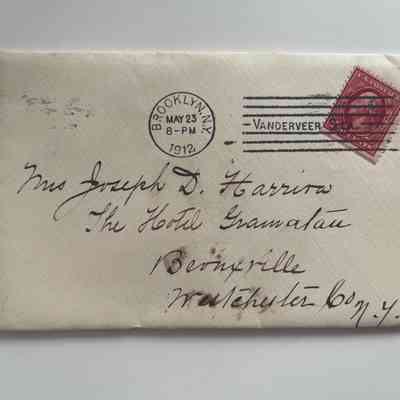 BROOKLYN, N.Y.
MAY 23
8-PM
1912
VANDERVEER STA.
Mrs Joseph D. Harrison
The Hotel Gramatan
Bronxville
Westchester Co N.Y.